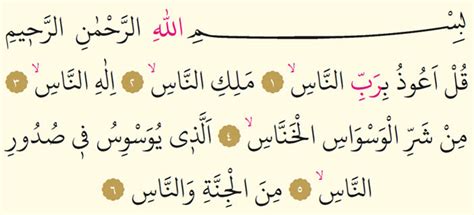 بِسْمِ اللهِ الرَّحْمٰنِ الرَّحٖيمِ
قُلْ اَعُوذُ بِرَبِّ النَّاسِۙ ﴿١﴾ مَلِكِ النَّاسِۙ ﴿٢﴾ اِلٰهِ النَّاسِۙ ﴿٣﴾
مِنْ شَرِّ الْوَسْوَاسِ الْخَنَّاسِۙ ﴿٤﴾ اَلَّذٖى يُوَسْوِسُ فٖى صُدُورِ
النَّاسِۙ ﴿٥﴾ مِنَ الْجِنَّةِ وَالنَّاسِ ﴿٦﴾